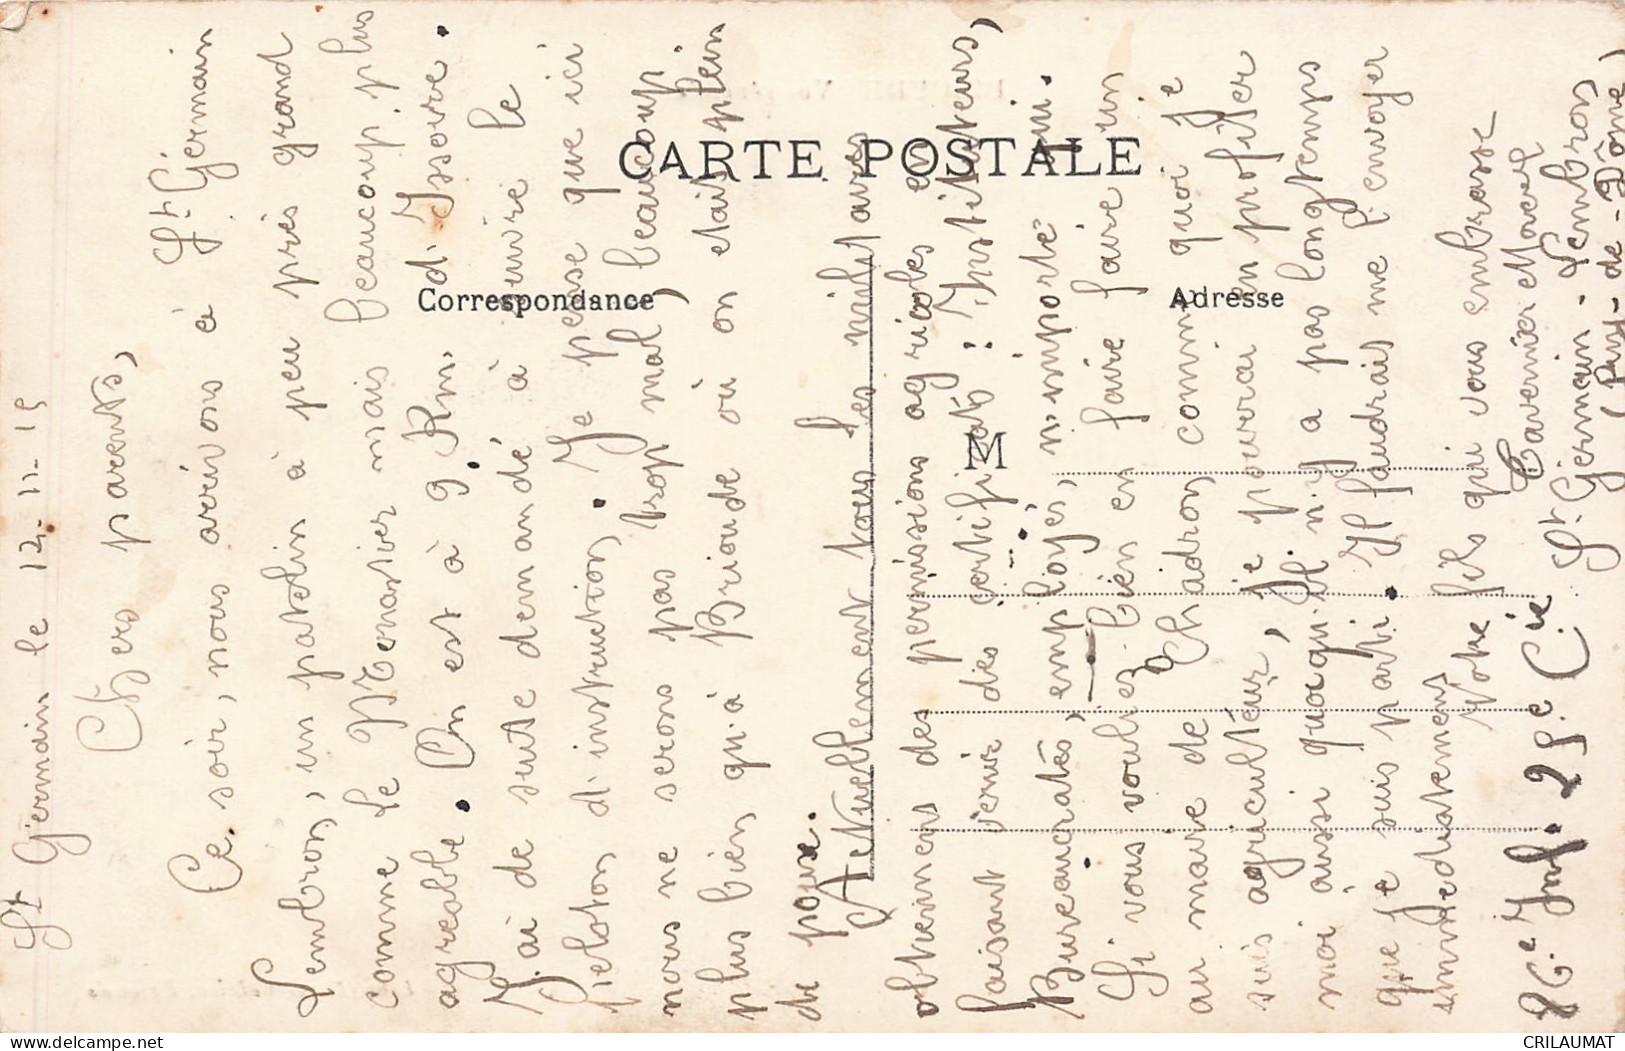 St Germain le 12-11-15
Chers parents,
Ce soir, nous arrivons à St. Germain
Lembron, un patelin à peu près grand
comme le Monastier mais beaucoup plus
agreable. On est à 9 Km d'Issoire.
J'ai de suite demandé à suivre le
Peloton d'instruction. Je pense que ici
nous ne serons pas trop mal, beaucoup
plus bien qu'à Brioude où on etais plein
de poux.
Actuellement tous les militaires
obtiennens des permission agricoles en
faisant venir des certificats : Instituteurs,
Bureaucratés, employés, n'importe qui.
Si vous vouliez bien en faire faire un
au maire de Chadron comme quoi je
suis agriculteur, je pourrai en profiter
moi aussi quoiqu'il n'y a pas longtemps
que je suis parti. Il faudrais me l'envoyer
immediatemens
Votre fils qui vous embrasse
Tavernier Marcel
86.e Inf. 25e Cie St. Germain - Lembron
(Puy-de-Dôme)
CARTE POSTALE
Correspondance
Adresse
M
delcampe.net
CRILAUMAT